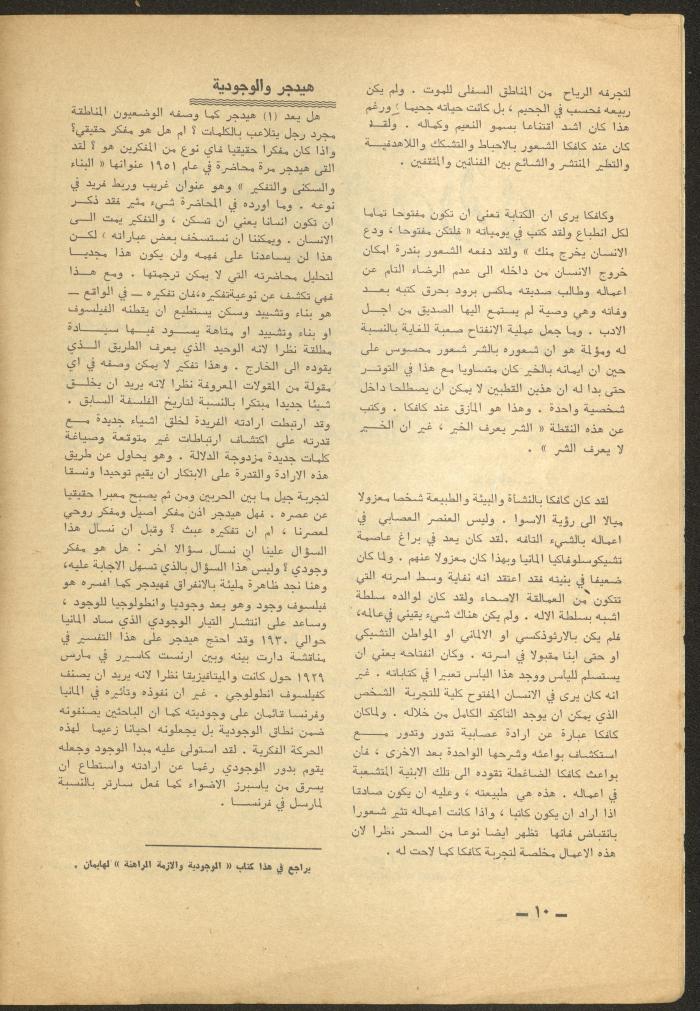 لتجرفه الرياح من المناطق السفلى للموت . ولم يكن
ربيعه فحسب في الجحيم ، بل كانت حياته جحيما ) ورغم
هذا كان اشد اقتناعا بسمو النعيم وكماله . ولقد
كان عند كافكا الشعور بالاحباط والتشكك واللاهدفية
والتطير المنتشر والشائع بين الفنانين والمثقفين .
وكافكا يرى ان الكتابة تعني ان تكون مفتوحا تماما
لكل انطباع ولقد كتب في يومياته « فلتكن مفتوحا ، ودع
الانسان يخرج منك » ولقد دفعه الشعور بندرة امكان
خروج الانسان من داخله الى عدم الرضاء التام عن
اعماله وطالب صديقه ماكس برود بحرق كتبه بعد
وفاته وهي وصية لم يستمع اليها الصديق من اجل
الادب . وما جعل عملية الانفتاح صعبة للغاية بالنسبة
له ومؤلمة هو ان شعوره بالشر شعور محسوس على
حين ان ايمانه بالخير كان متساويا مع هذا في التوتر
حتى بدا له ان هذين القطبين لا يمكن ان يصطلحا داخل
شخصية واحدة . وهذا هو المأزق عند كافكا . وكتب
عن هذه النقطة « الشر يعرف الخير ، غير ان الخير
لا يعرف الشر » .
لقد كان كافكا بالنشأة والبيئة والطبيعة شخصا معزولا
ميالا الى رؤية الاسوا . وليس العنصر العصابي في
اعماله بالشيء التافه .لقد كان يعد في براغ عاصمة
تشيكوسلوفاكيا المانيا وبهذا كان معزولا عنهم . ولما كان
ضعيفا في بنيته فقد اعتقد انه نفاية وسط اسرته التي
تتكون من العمالقة الاصحاء ولقد كان لوالده سلطة
اشبه بسلطة الاله . ولم يكن هناك شيء يقيني في عالمه،
فلم يكن بالارثوذكسي او الالماني او المواطن التشيكي
او حتى ابنا مقبولا في اسرته . وكان انفتاحه يعني ان
يستسلم للياس ووجد هذا الياس تعبيرا في كتاباته . غير
انه كان يرى في الانسان المفتوح كلية للتجربة الشخص
الذي يمكن ان يوجد التأكيد الكامل من خلاله . ولماكان
كافكا عبارة عن ارادة عصابية تدور وتدور مع
استكشاف بواعثه وشرحها الواحدة بعد الاخرى ، فان
بواعث كافكا الضاغطة تقوده الى تلك الابنية المتشعبة
في اعماله . هذه هي طبيعته ، وعليه ان يكون صادقا
اذا اراد ان يكون كاتبا ، واذا كانت اعماله تثير شعورا
بانقباض فانها تظهر ايضا نوعا من السحر نظرا لان
هذه الاعمال مخلصة لتجربة كافكا كما لاحت له .
هيدجر والوجودية
هل يعد (١) هيدجر كما وصفه الوضعيون المناطقة
مجرد رجل يتلاعب بالكلمات ؟ ام هل هو مفكر حقيقي؟
واذا كان مفكرا حقيقيا فاي نوع من المفكرين هو ؟ لقد
القى هيدجر مرة محاضرة في عام ١٩٥١ عنوانها « البناء
والسكنى والتفكير » وهو عنوان غريب وربط فريد في
نوعه . وما اورده في المحاضرة شيء مثير فقد ذكر
ان تكون انسانا يعني ان تسكن ، والتفكير يمت الى
الانسان . ويمكننا ان نستسخف بعض عباراته ) لكن
هذا لن يساعدنا على فهمه ولن يكون هذا مجديا
لتحليل محاضرته التي لا يمكن ترجمتها . ومع هذا
فهي تكشف عن نوعيةتفكيره،فان تفكيره ــ في الواقع ــ
هو بناء وتشييد وسكن يستطيع ان يقطنه الفيلسوف
او بناء وتشييد او متاهة يسود فيها سيادة
مطلقة نظرا لانه الوحيد الذي يعرف الطريق الذي
يقوده الى الخارج . وهذا تفكير لا يمكن وصفه في اي
مقولة من المقولات المعروفة نظرا لانه يريد ان يخلق
شيئا جديدا مبتكرا بالنسبة لتاريخ الفلسفة السابق .
وقد ارتبطت ارادته الفريدة لخلق اشياء جديدة مع
قدرته على اكتشاف ارتباطات غير متوقعة وصياغة
كلمات جديدة مزدوجة الدلالة . وهو يحاول عن طريق
هذه الارادة والقدرة على الابتكار ان يقيم توحيدا ونسقا
لتجربة جيل ما بين الحربين ومن ثم يصبح معبرا حقيقيا
عن عصره . فهل هيدجر اذن مفكر اصيل ومفكر روحي
لعصرنا ، ام ان تفكيره عبث ؟ وقبل ان نسأل هذا
السؤال علينا ان نسأل سؤالا اخر : هل هو مفكر
وجودي ؟ وليس هذا السؤال بالذي تسهل الاجابة عليه،
وهنا نجد ظاهرة مليئة بالانفراق فهيدجر كما افسره هو
فيلسوف وجود وهو يعد وجوديا وانطولوجيا للوجود ،
وساعد على انتشار التيار الوجودي الذي ساد المانيا
حوالي ١٩٣٠ وقد احتج هيدجر على هذا التفسير في
مناقشة دارت بينه وبين ارنست كاسيرر في مارس
١٩٢٩ حول كانت والميتافيزيقا نظرا لانه يريد ان يصنف
كفيلسوف انطولوجي . غير ان نفوذه وتأثيره في المانيا
وفرنسا قائمان على وجوديته كما ان الباحثين يصنفونه
ضمن نطاق الوجودية بل يجعلونه احيانا زعيما لهذه
الحركة الفكرية . لقد استولى عليه مبدا الوجود وجعله
يقوم بدور الوجودي رغما عن ارادته واستطاع ان
يسرق من ياسبرز الاضواء كما فعل سارتر بالنسبة
لمارسل في فرنسا .
يراجع في هذا كتاب « الوجودية والازمة الراهنة » لهايمان .
ــ ١٠ ــ